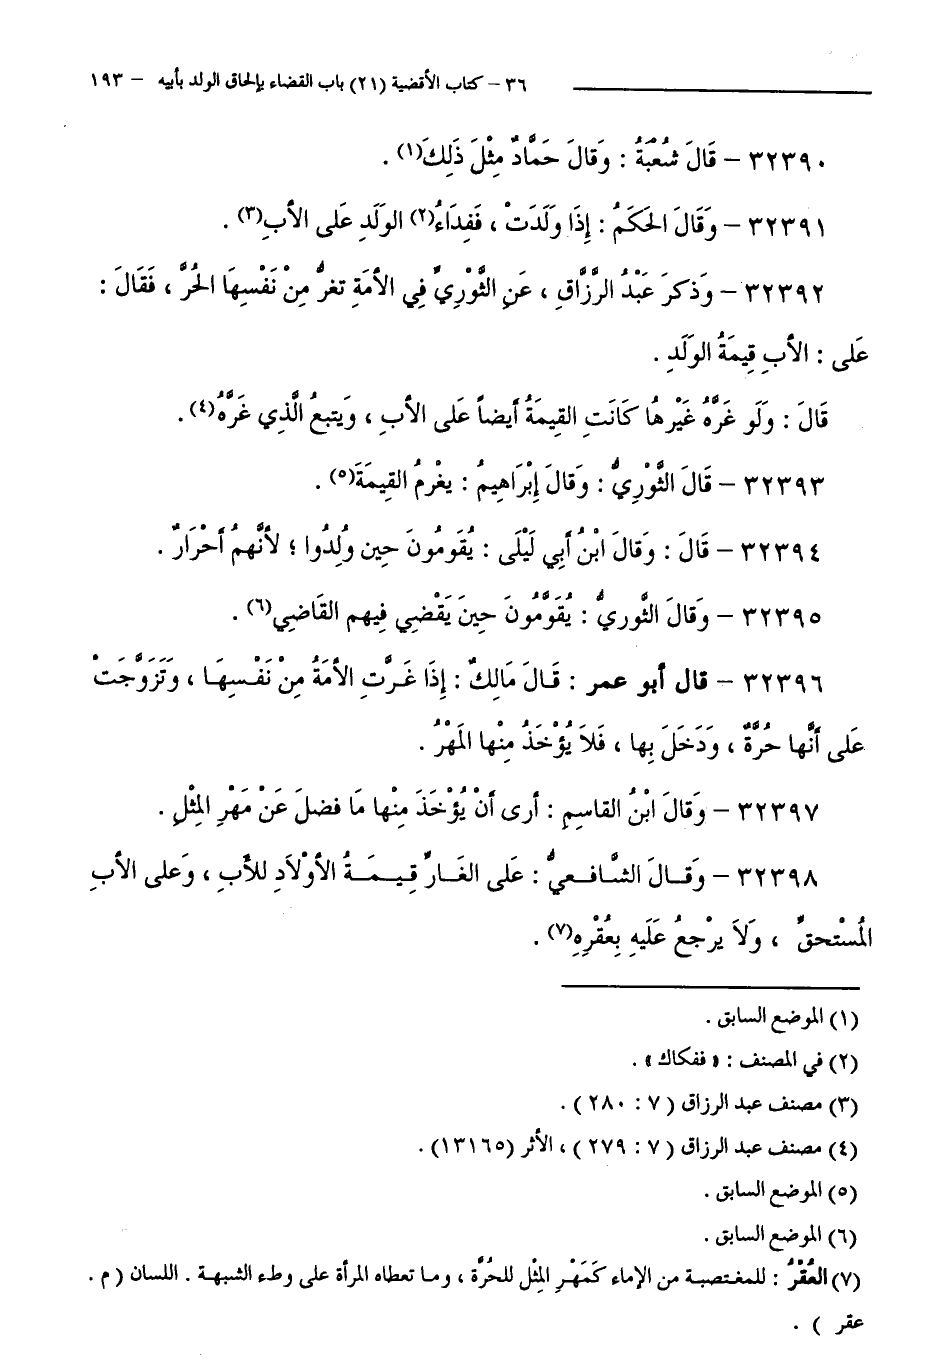 ٣٦ – كتاب الأقضية (٢١) باب القضاء بإلحاق الولد بأبيه – ١٩٣
٣٢٣٩٠ – قَالَ شُعْبَةُ : وَقالَ حَمَّادٌ مِثْلَ ذَلِكَ(١) .
٣٢٣٩١ – وَقَالَ الحَكَمُ : إِذَا وَلَدَتْ ، فَفِدَاءُ(٢) الوَلَدِ عَلى الأبِ(٣) .
٣٢٣٩٢ – وَذكرَ عَبْدُ الرَّزَّاقِ ، عَنِ الثَّوْرِيِّ فِي الأمَةِ تغرُّ مِنْ نَفْسِهَا الحُرَّ ، فَقَالَ :
عَلى : الأبِ قِيمَةُ الوَلَدِ .
قَالَ : وَلَو غَرَّهُ غَيْرهُا كَانَتِ القيمَةُ أيضاً عَلى الأبِ ، وَيَتبعُ الَّذِي غَرَّهُ(٤) .
٣٢٣٩٣ – قَالَ الثَّوْرِيُّ : وَقالَ إِبْرَاهِيمُ : يغْرمُ القِيمَةَ(٥) .
٣٢٣٩٤ – قَالَ : وَقَالَ ابْنُ أَبِي لَيْلَى : يُقَومُونَ حِين وُلِدُوا ؛ لأنَّهمُ أحْرَارٌ .
٣٢٣٩٥ – وَقَالَ الثَّوريُّ : يُقَوَّمُونَ حِينَ يَقْضِي فِيهم القَاضِي(٦) .
٣٢٣٩٦ – قال أبو عمر : قَالَ مَالِكٌ : إِذَا غَرَّتِ الأمَةُ مِنْ نَفْسِهَا ، وَتَزَوَّجَتْ
عَلى أنَّها حُرَّةٌ ، وَدَخَلَ بِها ، فَلاَ يُؤْخَذُ مِنْها المَهْرُ .
٣٢٣٩٧ – وَقَالَ ابْنُ القاسِمِ : أرى أنْ يُؤْخَذَ مِنْها مَا فضلَ عَنْ مَهْرِ المِثْلِ .
٣٢٣٩٨ – وَقَالَ الشَّافعيُّ : عَلى الغَارِّ قِيمَةُ الأوْلاَدِ للأبِ ، وَعلى الأبِ
المُسْتحقِّ ، وَلاَ يرْجعُ عَلَيهِ بِعُقْرِهِ(٧) .
(١) الموضع السابق .
(٢) في المصنف : « ففكاك » .
(٣) مصنف عبد الرزاق ( ٧ : ٢٨٠ ) .
(٤) مصنف عبد الرزاق ( ٧ : ٢٧٩ ) ، الأثر (١٣١٦٥) .
(٥) الموضع السابق .
(٦) الموضع السابق .
(٧) العُقْرُ : للمغتصبة من الإماء كَمَهْرِ المِثْل للحُرَّة ، وما تعطاه المرأة على وطء الشبهة . اللسان ( م .
عقر ) .